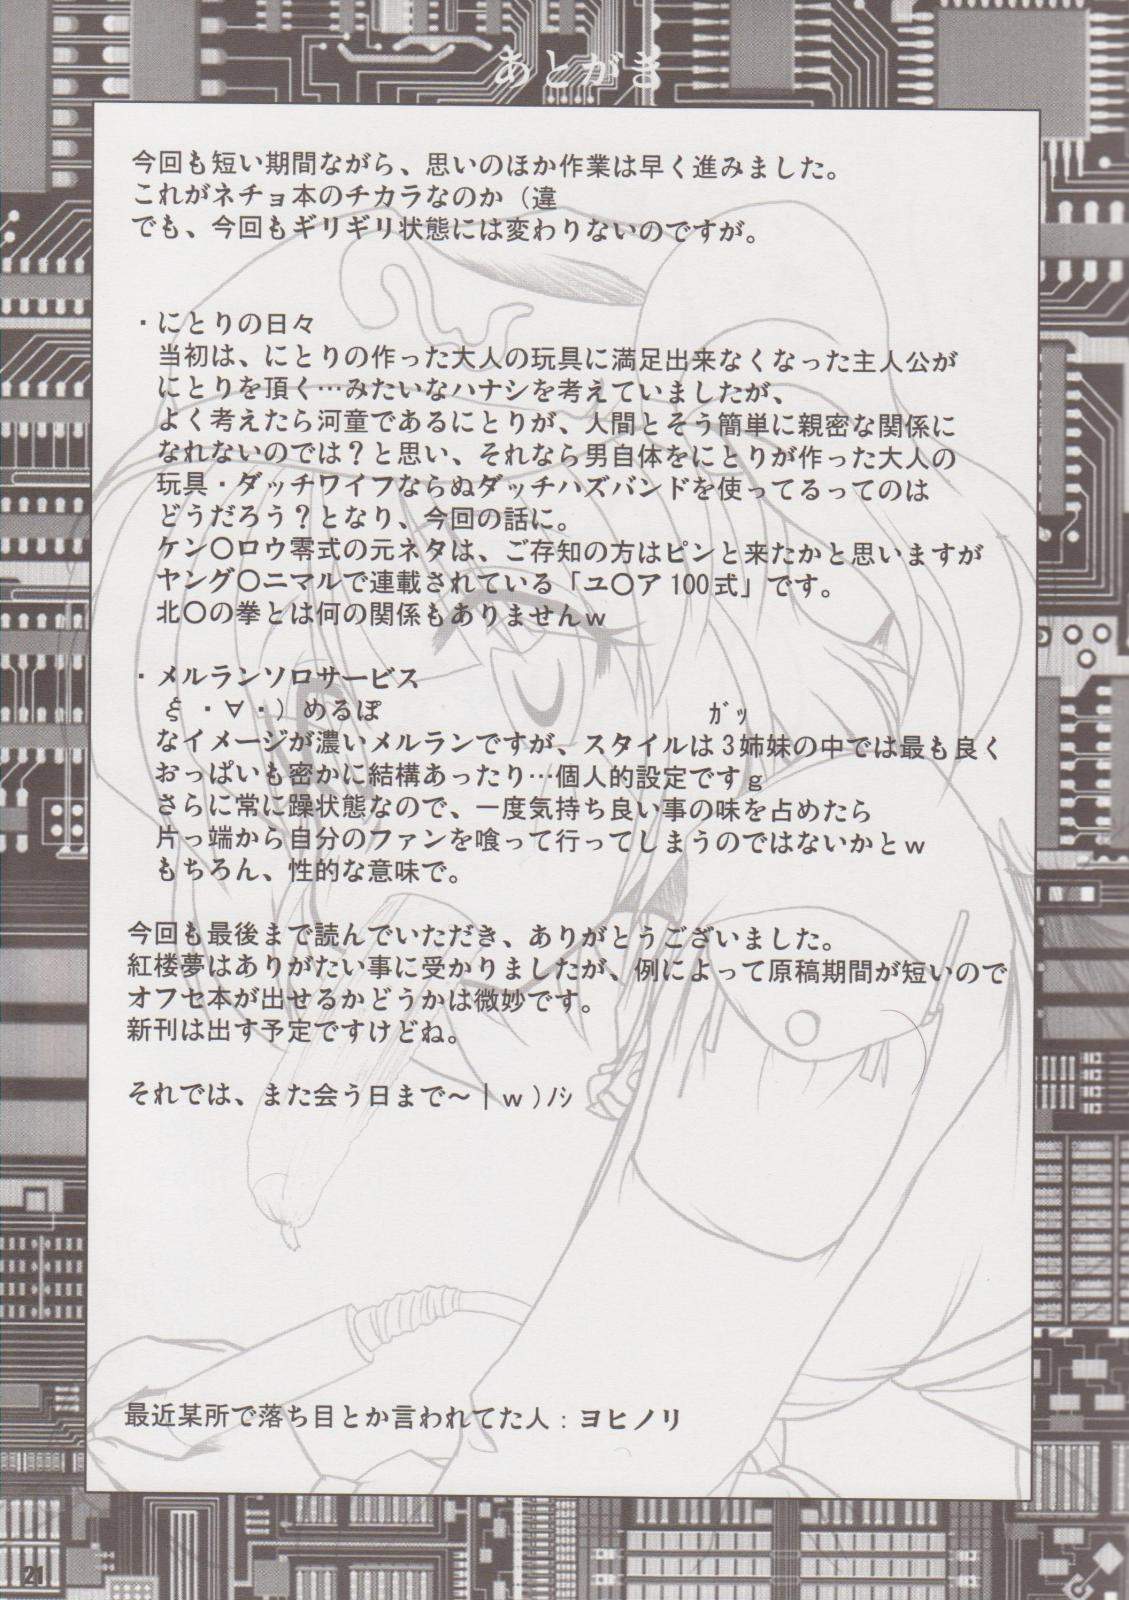 あとがき
今回も短い期間ながら、思いのほか作業は早く進みました。
これがネチョ本のチカラなのか（違
でも、今回もギリギリ状態には変わりないのですが。
・にとりの日々
当初は、にとりの作った大人の玩具に満足出来なくなった主人公が
にとりを頂く…みたいなハナシを考えていましたが、
よく考えたら河童であるにとりが、人間とそう簡単に親密な関係に
なれないのでは？と思い、それなら男自体をにとりが作った大人の
玩具・ダッチワイフならぬダッチハズバンドを使ってるってのは
どうだろう？となり、今回の話に。
ケン〇ロウ零式の元ネタは、ご存知の方はピンと来たかと思いますが
ヤング〇ニマルで連載されている「ユ〇ア100式」です。
北〇の拳とは何の関係もありませんｗ
・メルランソロサービス
ξ・∀・）めるぽ　ｶﾞｯ
なイメージが濃いメルランですが、スタイルは3姉妹の中では最も良く
おっぱいも密かに結構あったり…個人的設定ですｇ
さらに常に躁状態なので、一度気持ち良い事の味を占めたら
片っ端から自分のファンを喰って行ってしまうのではないかとｗ
もちろん、性的な意味で。
今回も最後まで読んでいただき、ありがとうございました。
紅楼夢はありがたい事に受かりましたが、例によって原稿期間が短いので
オフセ本が出せるかどうかは微妙です。
新刊は出す予定ですけどね。
それでは、また会う日まで～｜ｗ）ﾉｼ
最近某所で落ち目とか言われてた人：ヨヒノリ
21